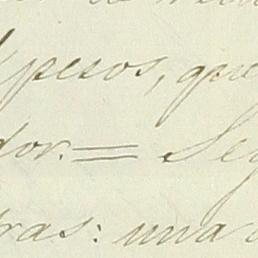 pesos, que
dor. = Seg
ras: una